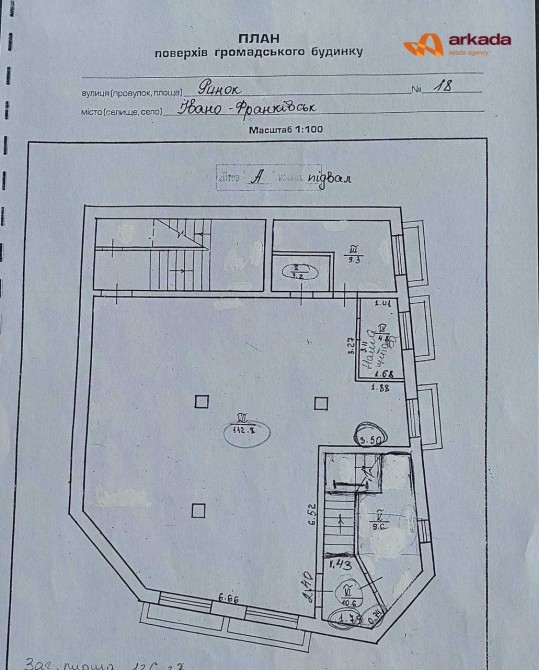 ПЛАН
поверхів громадського будинку
arkada
estate agency
вулиця (провулок, площа) Ринок № 18
місто (селище, село) Івано-Франківськ
Масштаб 1:100
Літер "А" підвал
III
9.3
1.01
IV
4.8
3.27
3.11
1.68
1.88
112.8
3.50
6.52
V
9.6
1.43
2.40
VI
10.6
1.79
6.66
Заг. площа